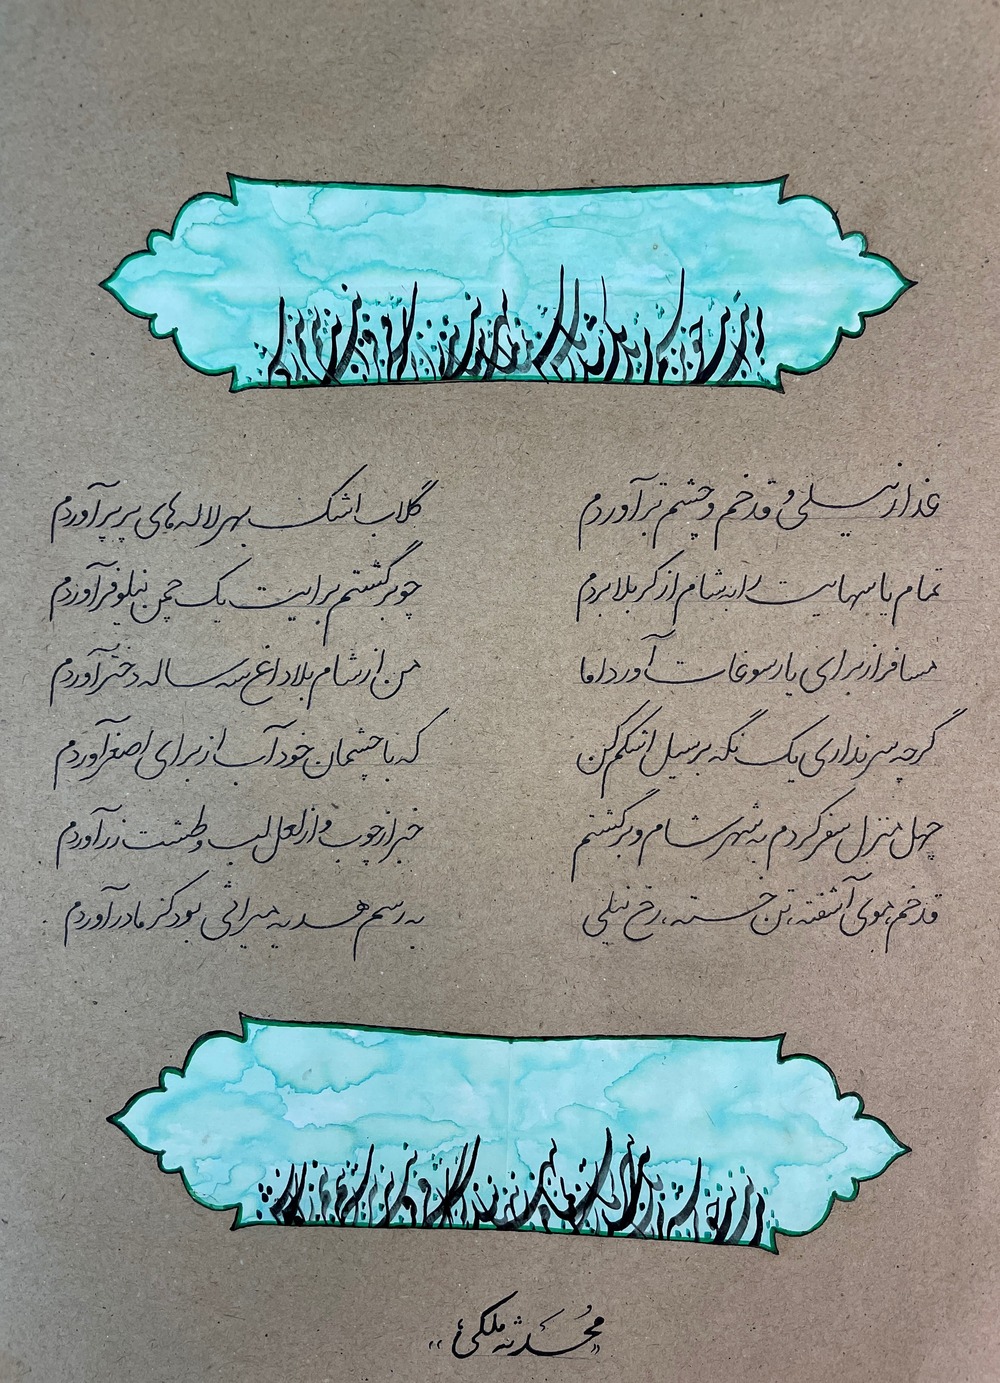 عذار نیلی و قد خم و چشم تر آوردم گلاب اشک بهر لاله های پرپر آوردم
تمام یاسهایت را به شام از کربلا بردم چو برگشتم برایت یک چمن نیلوفر آوردم
مسافر از برای یار سوغات آورد اما من از شام بلا داغ سه ساله دختر آوردم
گرچه سر نداری یک نگه بر سیل اشکم کن که با چشمان خود آب از برای اصغر آوردم
چهل منزل سفر کردم به شهر شام و برگشتم خبر از چوب و از لعل لب و طشت زر آوردم
قد خم، موی آشفته، تن خسته، رخ نیلی به رسم هدیه میراثی بود کز مادر آوردم
«محدثه ملکی»